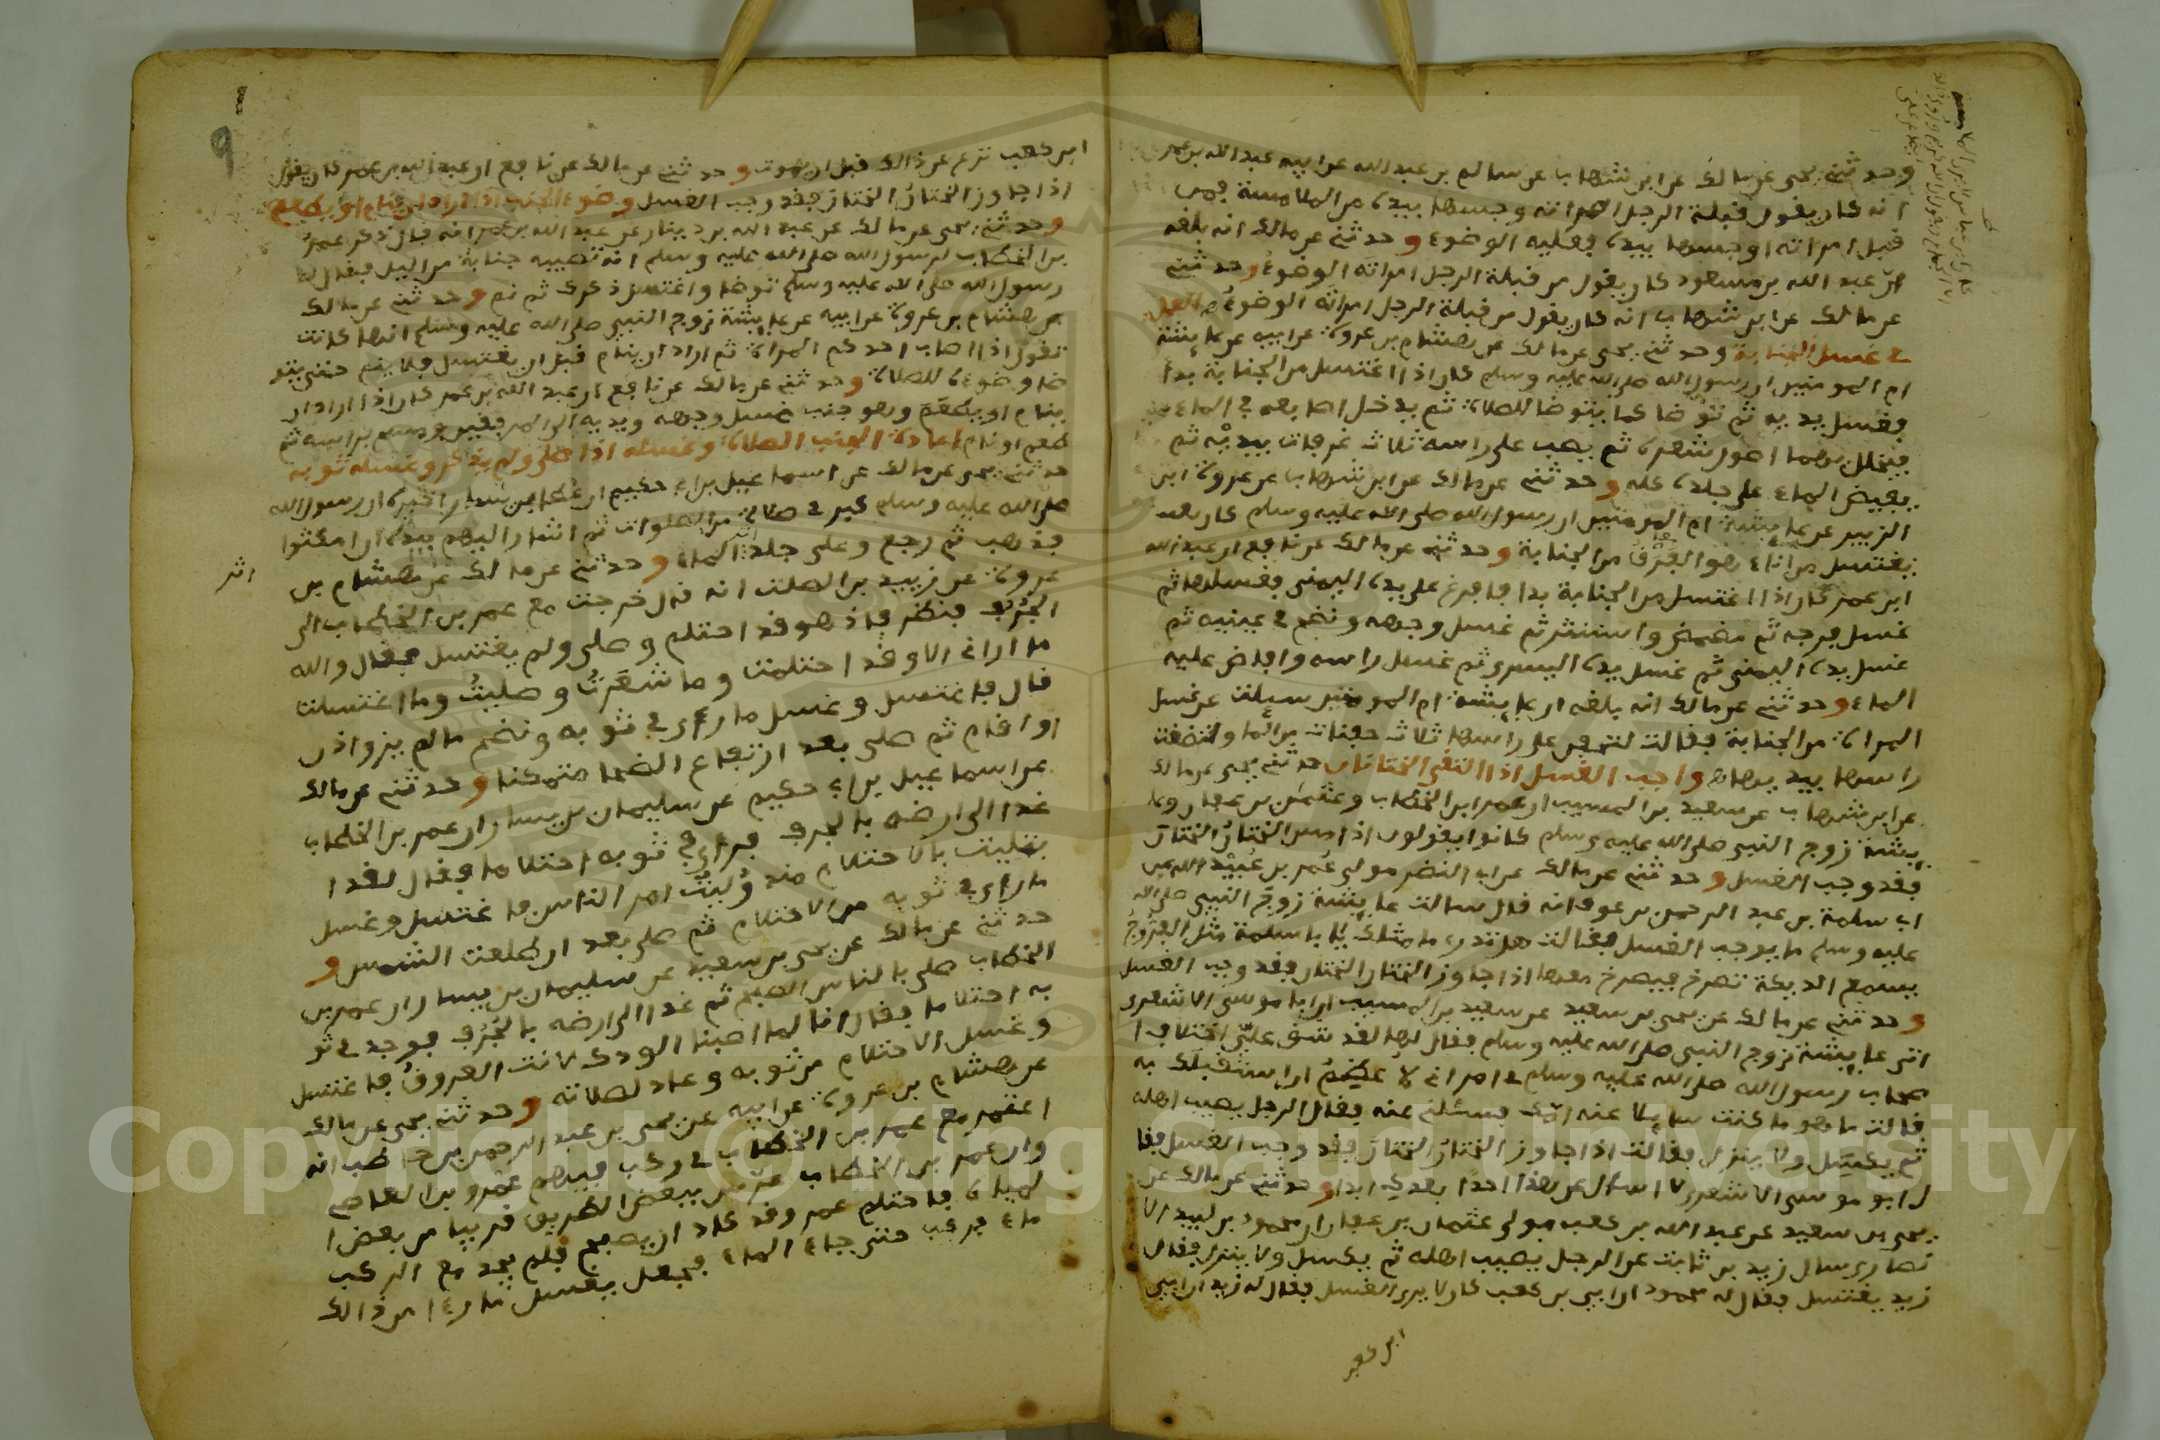 وحدثني يحيى عن مالك عن ابن شهاب عن سالم بن عبد الله عن ابيه عبد الله بن عمر
انه كان يقول قبلة الرجل امراته وجسها بيده من الملامسة فمن
قبل امراته او جسها بيده فعليه الوضوء وحدثني عن مالك انه بلغه
ان عبد الله بن مسعود كان يقول من قبلة الرجل امراته الوضوء وحدثني
عن مالك عن ابن شهاب انه كان يقول من قبلة الرجل امراته الوضوء العمل
في غسل الجنابة وحدثني يحيى عن مالك عن هشام بن عروة عن ابيه عن عايشة
ام المومنين ان رسول الله صلى الله عليه وسلم كان اذا اغتسل من الجنابة بدا
فغسل يديه ثم توضا كما يتوضا للصلاة ثم يدخل اصابعه في الماء
فيخلل بهما اصول شعره ثم يصب على راسه ثلاث غرفات بيديه ثم
يفيض الماء على جلده كله وحدثني عن مالك عن ابن شهاب عن عروة ابن
الزبير عن عايشة ام المومنين ان رسول الله صلى الله عليه وسلم كان
يغتسل من اناء هو الفرق من الجنابة وحدثني عن مالك عن نافع ان عبد الله
ابن عمر كان اذا اغتسل من الجنابة بدا فافرغ على يده اليمنى فغسلها ثم
غسل فرجه ثم مضمض واستنثر ثم غسل وجهه ونضح في عينيه ثم
غسل يده اليمنى ثم غسل يده اليسرى ثم غسل راسه وافاض عليه
الماء وحدثني عن مالك انه بلغه ان عايشة ام المومنين سيلت عن غسل
المراة من الجنابة فقالت لتحفن على راسها ثلاث حفنات من الماء ولتضغث
راسها بيديها واجب الغسل اذا التقى الختانان حدثني يحيى عن مالك
عن ابن شهاب عن سعيد بن المسيب ان عمر ابن الخطاب وعثمن بن عفان وعا
يشة زوج النبي صلى الله عليه وسلم كانوا يقولون اذا مس الختان الختان
فقد وجب الغسل وحدثني عن مالك عن ابي النضر مولى عمر بن عبيد الله عن
ابي سلمة بن عبد الرحمن بن عوف انه قال سالت عايشة زوج النبي صلى الله
عليه وسلم ما يوجب الغسل فقالت هل تدري ما مثلك يا با سلمة مثل الفروج
يسمع الديكة تصرخ فيصرخ معها اذا جاوز الختان الختان فقد وجب الغسل
وحدثني عن مالك عن يحيى بن سعيد عن سعيد بن المسيب ان ابا موسى الاشعري
اتى عايشة زوج النبي صلى الله عليه وسلم فقال لها لقد شق علي اختلاف ا
صحاب رسول الله صلى الله عليه وسلم في امر اني لاعظم ان استقبلك به
فالت ما هو ما كنت سايلا عنه امك فسئلني عنه فقال الرجل يصيب اهله
ثم يكسل ولا ينزل فقالت اذا جاوز الختان الختان فقد وجب الغسل فقا
ل ابو موسى الاشعري لا اسال عن هذا احدا بعدك ابدا وحدثني عن مالك عن
يحيى بن سعيد عن عبد الله بن كعب مولى عثمان بن عفان ان محمود بن لبيد الا
نصاري سال زيد بن ثابت عن الرجل يصيب اهله ثم يكسل ولا ينزل فقال
زيد يغتسل فقال له محمود ان ابي بن كعب كان لا يرى الغسل فقال له زيد ان ابي
ابن كعب
9
ابن كعب نزع عن ذالك قبل ان يموت وحدثني عن مالك عن نافع ان عبد الله بن عمر كان يقول
اذا جاوز الختان الختان فقد وجب الغسل وضوء الجنب اذا اراد ان ينام او يطعم
وحدثني يحيى عن مالك عن عبد الله بن دينار عن عبد الله بن عمر انه قال ذكر عمر
بن الخطاب لرسول الله صلى الله عليه وسلم انه تصيبه جنابة من اليل فقال له
رسول الله صلى الله عليه وسلم توضا واغتسل ذكرك ثم نم وحدثني عن مالك
عن هشام بن عروة عن ابيه عن عايشة زوج النبي صلى الله عليه وسلم انها كانت
تقول اذا اصاب احدكم المراة ثم اراد ان ينام قبل ان يغتسل فلا ينم حتى يتو
ضا وضوءه للصلاة وحدثني عن مالك عن نافع ان عبد الله بن عمر كان اذا اراد ان
ينام او يطعم وهو جنب غسل وجهه ويديه الى المرفقين ومسح براسه ثم
طعم او نام اعادة الجنب الصلاة وغسله اذا صلى ولم يذكر وغسله ثوبه
حدثني يحيى عن مالك عن اسماعيل بن ابي حكيم ان عطا بن يسار اخبره ان رسول الله
صلى الله عليه وسلم كبر في صلاة من الصلوات ثم اشار اليهم بيده ان امكثوا
فذهب ثم رجع وعلى جلده اثر الماء وحدثني عن مالك عن هشام بن
عروة عن زييد بن الصلت انه قال خرجت مع عمر بن الخطاب الى
الجرف فنظر فاذا هو قد احتلم وصلى ولم يغتسل فقال والله
ما اراني الا وقد احتلمت وما شعرت وصليت وما اغتسلت
قال فاغتسل وغسل ما رءى في ثوبه ونضح ما لم ير واذن
او اقام ثم صلى بعد ارتفاع الضحا متمكنا وحدثني عن مالك
عن اسماعيل بن ابي حكيم عن سليمان بن يسار ان عمر بن الخطاب
غدا الى ارضه بالجرف فرءى في ثوبه احتلاما فقال لقد ا
بتليت بالاحتلام منذ وليت امر الناس فاغتسل وغسل
ما رءى في ثوبه من الاحتلام ثم صلى بعد ان طلعت الشمس و
حدثني عن مالك عن يحيى بن سعيد عن سليمان بن يسار ان عمر بن
الخطاب صلى بالناس الصبح ثم غدا الى ارضه بالجرف فوجد في ثو
به احتلاما فقال انا لما اصبنا الودك لانت العروق فاغتسل
وغسل الاحتلام من ثوبه وعاد لصلاته وحدثني يحيى عن مالك
عن هشام بن عروة عن ابيه عن يحيى بن عبد الرحمن بن حاطب انه
اعتمر مع عمر بن الخطاب في ركب فيهم عمرو بن العاص
وان عمر بن الخطاب عرس ببعض الطريق قريبا من بعض ا
لمياه فاحتلم عمر وقد كاد ان يصبح فلم يجد مع الركب
ماء فركب حتى جاء الماء فجعل يغسل ما رءا من ذالك
اثر
Copyright © King Saud University